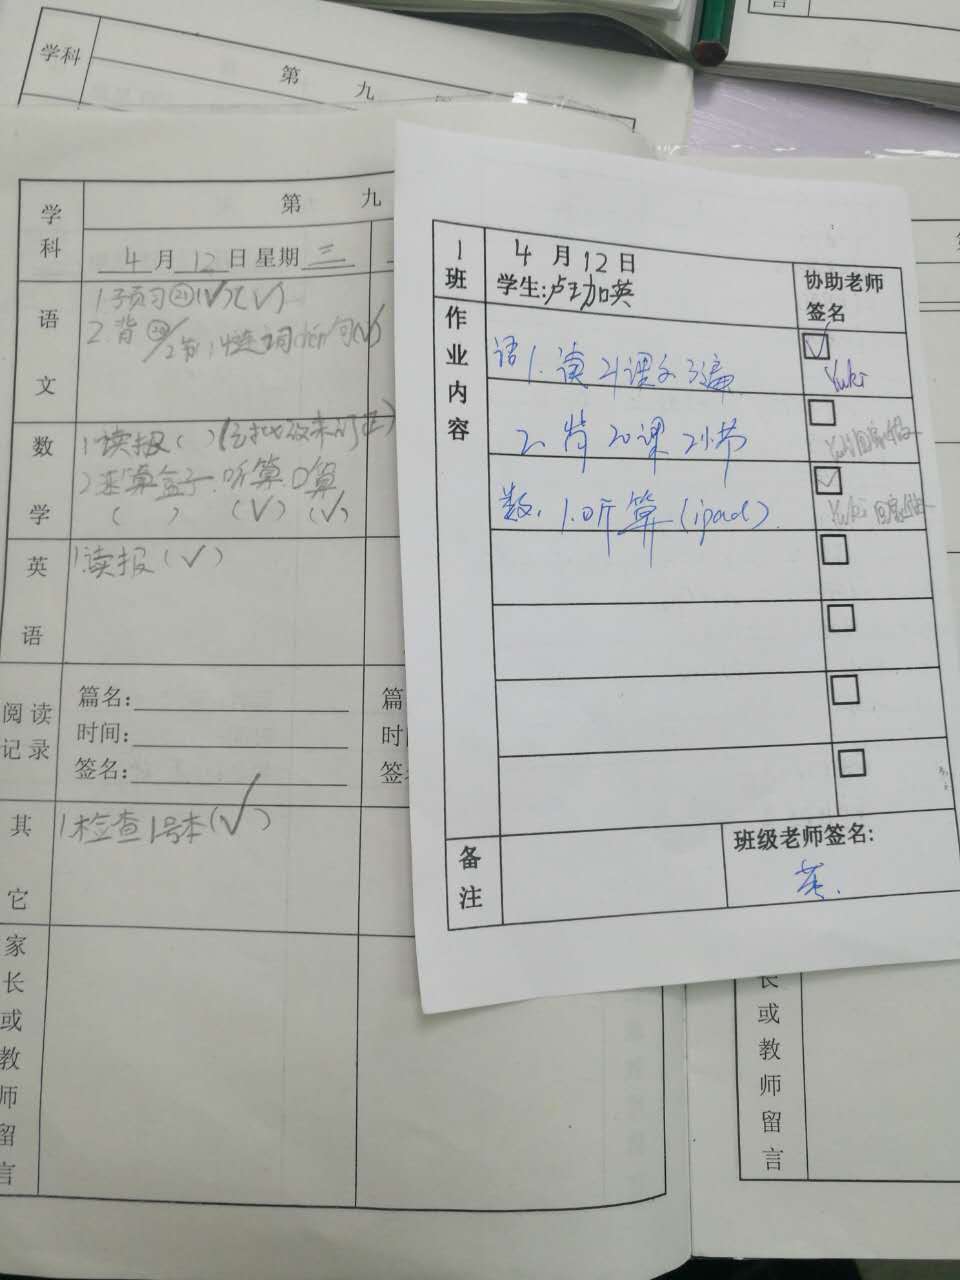 学科
第 九
学科
第 九
4月12日 星期三
语文
1.预习㉑(√)(√)
2.背⑳/2节
数学
1.读报( )
听算 口算
( ) (√) (√)
英语
1.读报(√)
阅读记录
篇名:
时间:
签名:
篇
时
签
其它
1.检查1号本(√)
家长或教师留言
1班
4月12日
学生:卢加英
协助老师签名
作业内容
语1.读21课文3遍
Yuki
2.背20课2小节
Yuki回家
数.1.听算(ipad)
Yuki回家
备注
班级老师签名:
英.
长或教师留言